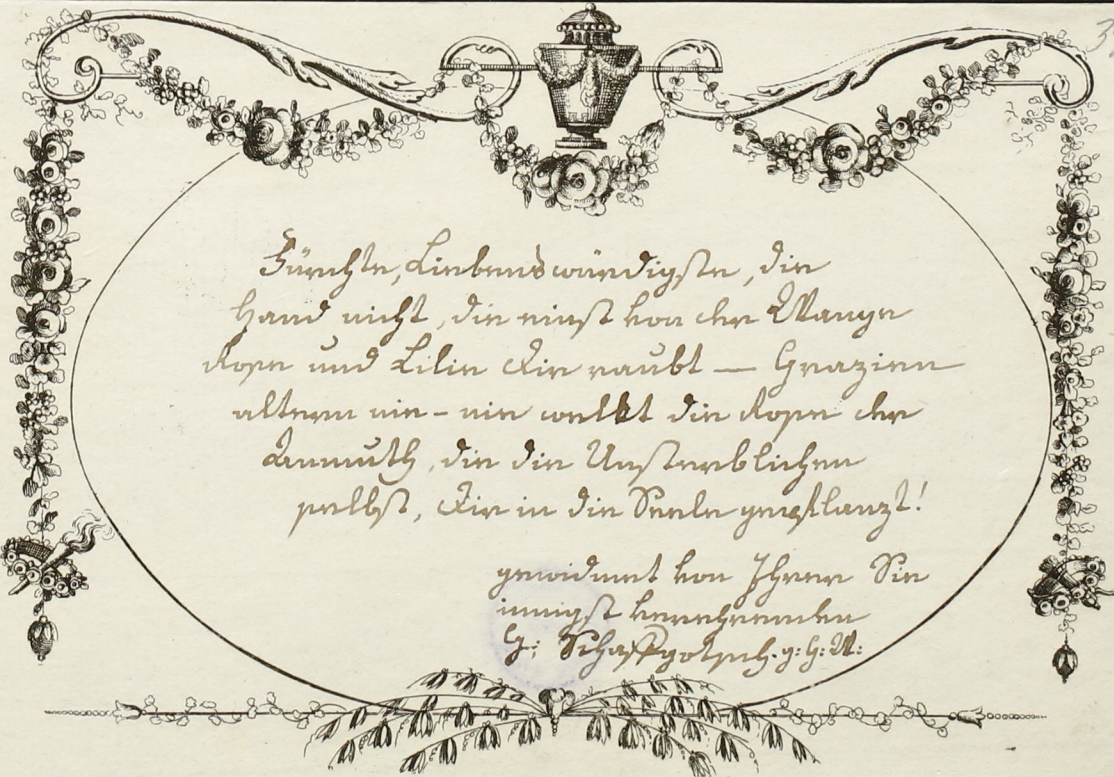 Fürchte, Liebenswürdigste, die
Hand nicht, die einst von der Wange
Rose und Lilie Dir raubt — Grazien
altern nie – nie welkt die Rose der
Anmuth, die die Unsterblichen
selbst, Dir in die Seele gepflanzt!
gewidmet von Ihrer Sie
innigst verehrenden
G: Schaffgotsch. g: G: W:
3